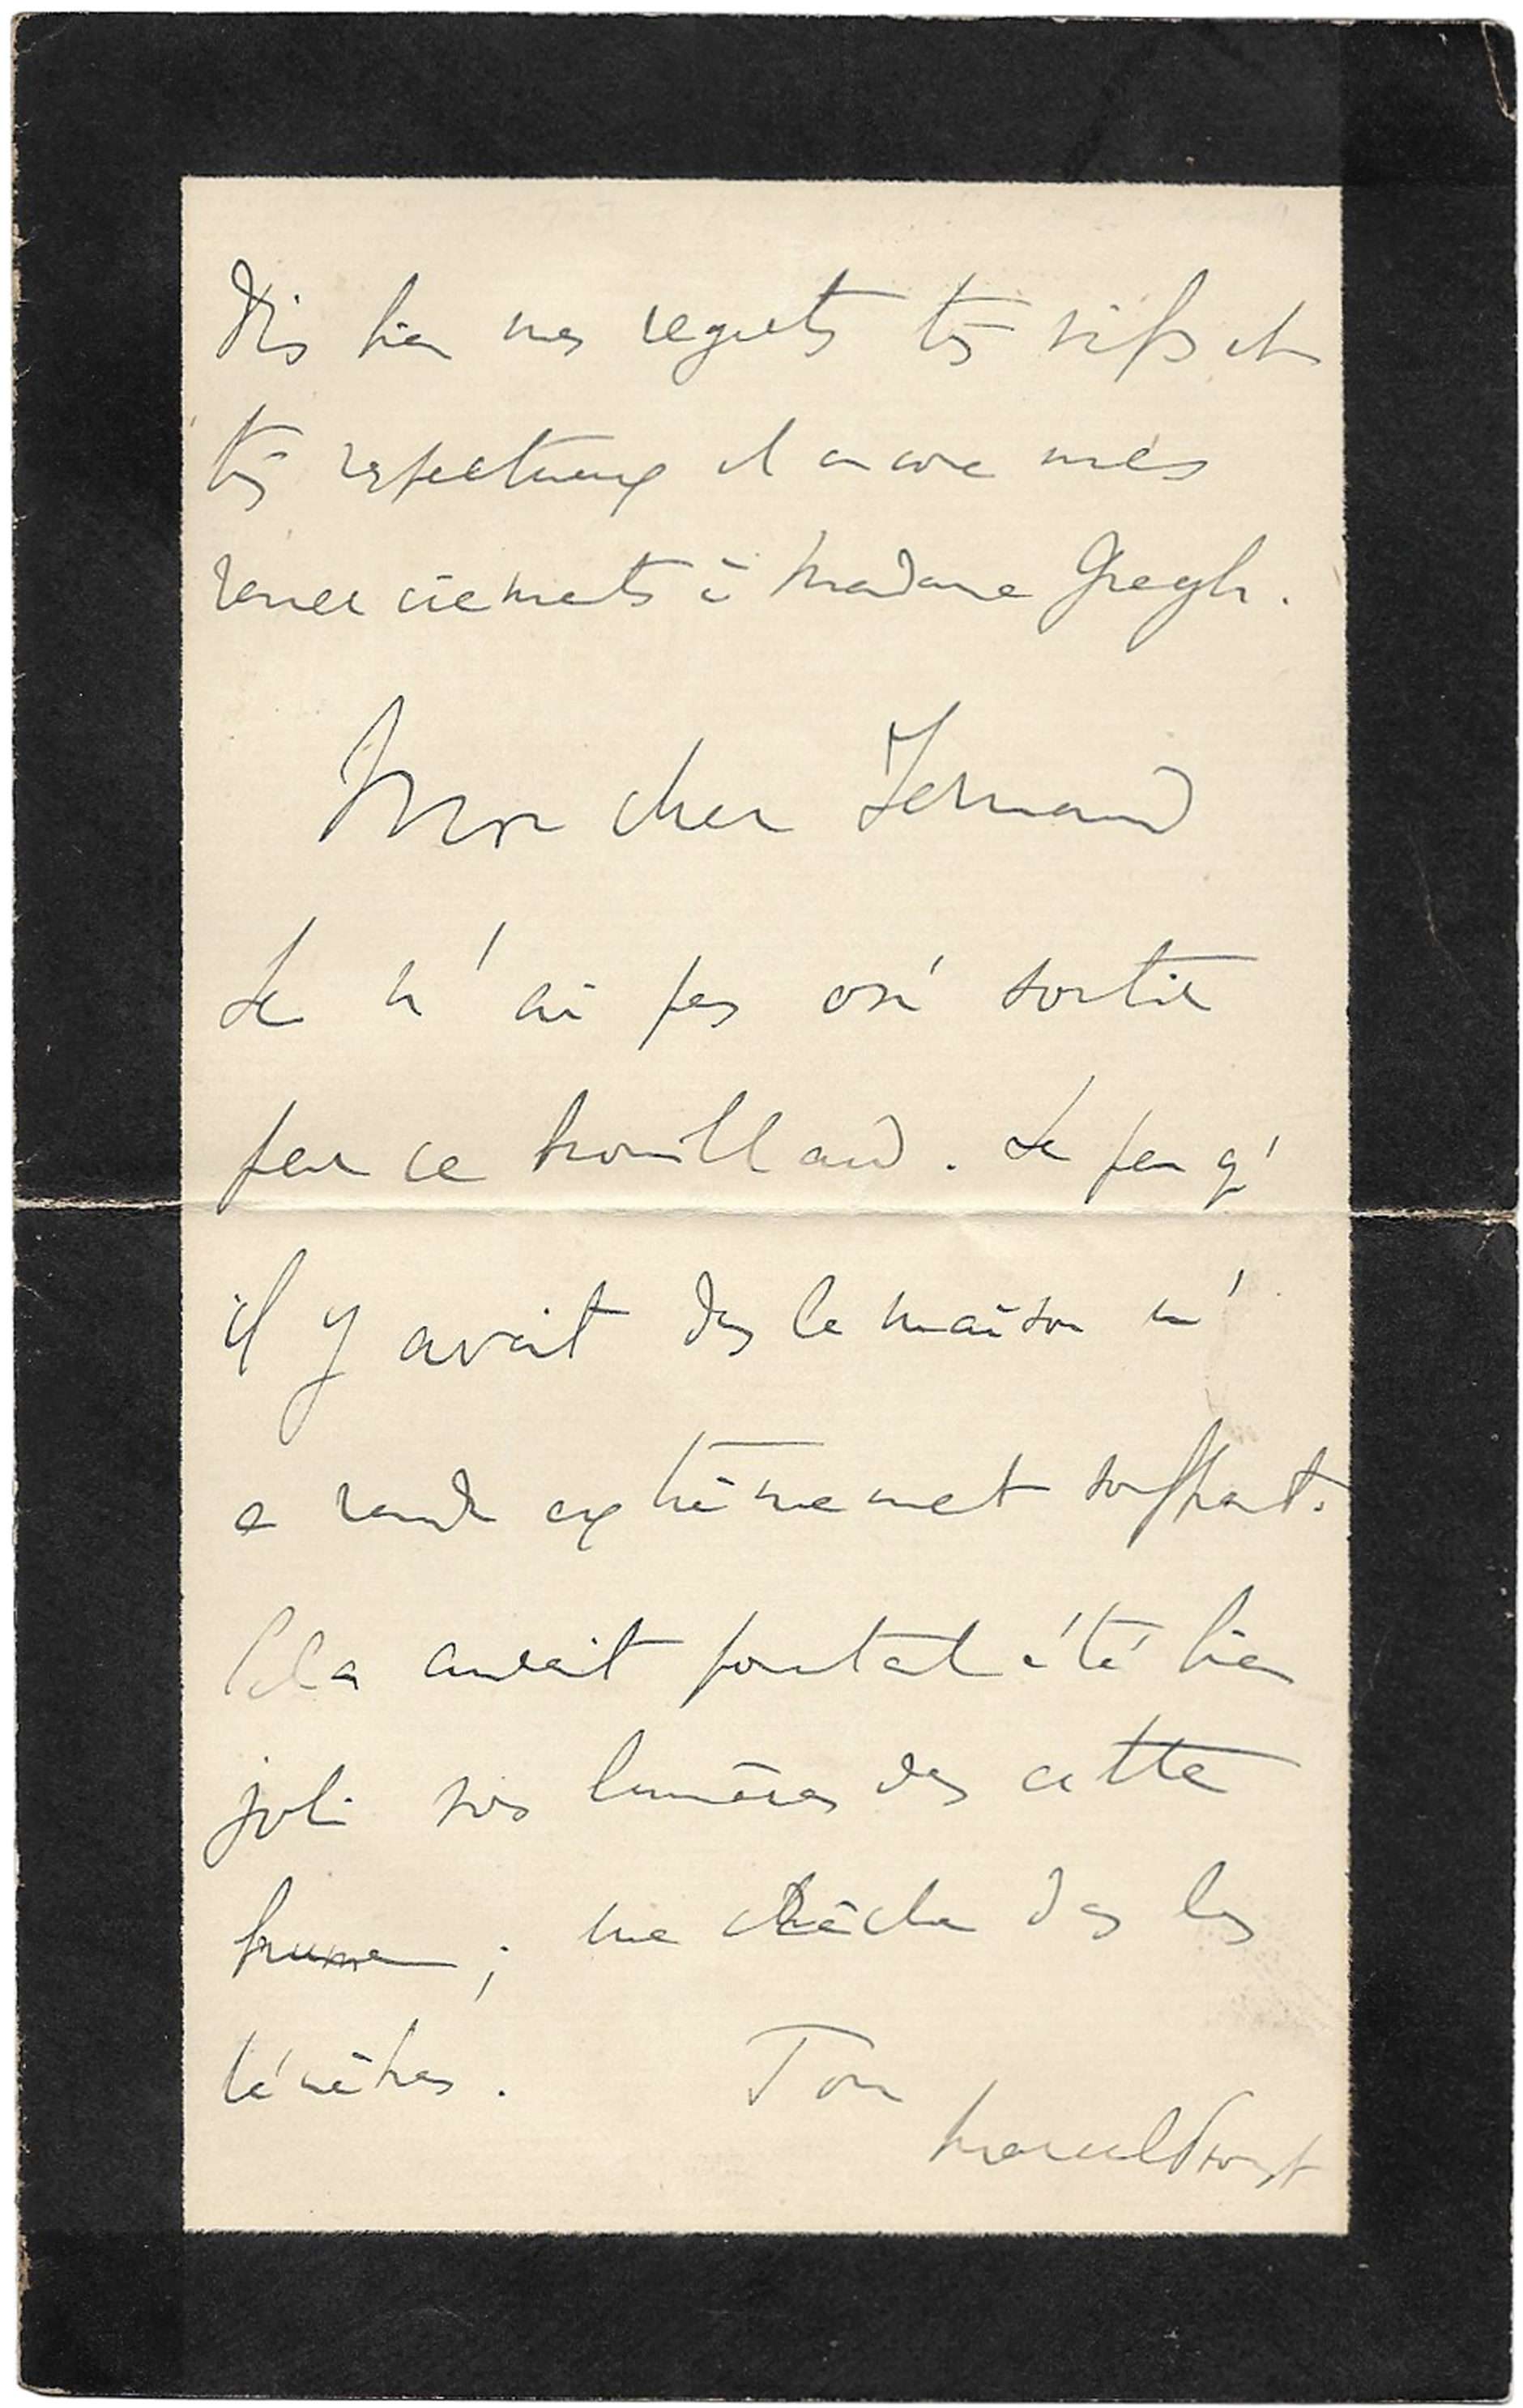 Dis bien mes regrets très vifs et
très respectueux et encore mes
remerciements à Madame Gregh.
Mon cher Fernand
Je n'ai pas osé sortir
par ce brouillard. Le peu q'
il y avait dans la maison m'
a rendu extrêmement souffrant.
Cela aurait pourtant été bien
joli vos lumières dans cette
brume ; une crèche dans les
ténèbres. Ton
Marcel Proust